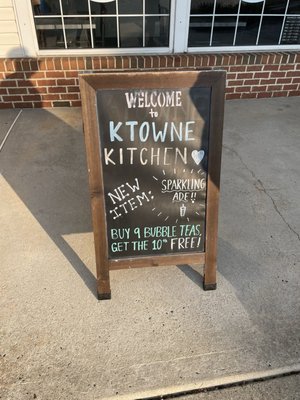 WELCOME
to
KTOWNE
KITCHEN
NEW
ITEM:
SPARKLING
ADE!!
BUY 9 BUBBLE TEAS,
GET THE 10th FREE!